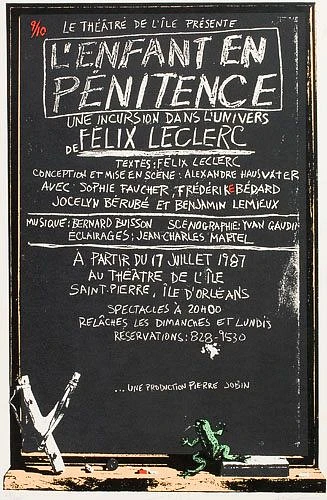 9/10
LE THÉÂTRE DE L'ÎLE PRÉSENTE
L'ENFANT EN
PÉNITENCE
UNE INCURSION DANS L'UNIVERS
DE FÉLIX LECLERC
TEXTES: FÉLIX LECLERC
CONCEPTION ET MISE EN SCÈNE: ALEXANDRE HAUSVATER
AVEC: SOPHIE FAUCHER, FRÉDÉRIKE BÉDARD
JOCELYN BÉRUBÉ ET BENJAMIN LEMIEUX
MUSIQUE: BERNARD BUISSON SCÉNOGRAPHIE: YVAN GAUDIN
ÉCLAIRAGES: JEAN-CHARLES MARTEL
À PARTIR DU 17 JUILLET 1987
AU THÉÂTRE DE L'ÎLE
SAINT-PIERRE, ÎLE D'ORLÉANS
SPECTACLES À 20H00
RELÂCHES LES DIMANCHES ET LUNDIS
RÉSERVATIONS: 828-9530
...UNE PRODUCTION PIERRE JOBIN